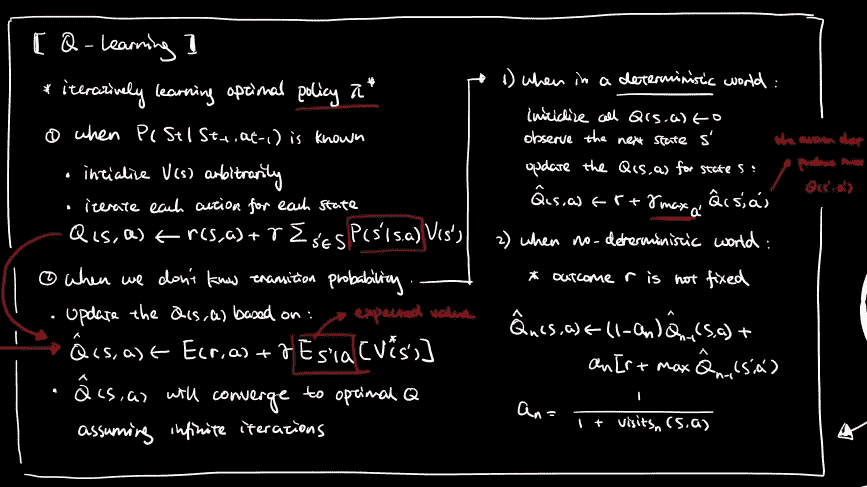 [ Q-learning ]
* iteratively learning optimal policy π*
① when P(St | St-1, at-1) is known
• intialize V(s) arbitrarily
• iterate each action for each state
Q(s,a) ← r(s,a) + γ Σs'∈S P(s'|s,a) V(s')
② when we don't know transition probability.
• update the Q(s,a) based on:
expected value
Q̂(s,a) ← E(r,a) + γ Es'|a [V*(s')]
• Q̂(s,a) will converge to optimal Q
assuming infinite iterations
1) when in a deterministic world:
initialize all Q(s,a) ← 0
observe the next state s'
update the Q(s,a) for state s:
the action that
produce max
Q(s',a')
Q̂(s,a) ← r + γmaxa' Q̂(s',a')
2) when no-deterministic world:
* outcome r is not fixed
Q̂n(s,a) ← (1-an) Q̂n-1(s,a) +
an[r + max Q̂n-1(s',a')
an = 1 / 1 + visitsn(s,a)